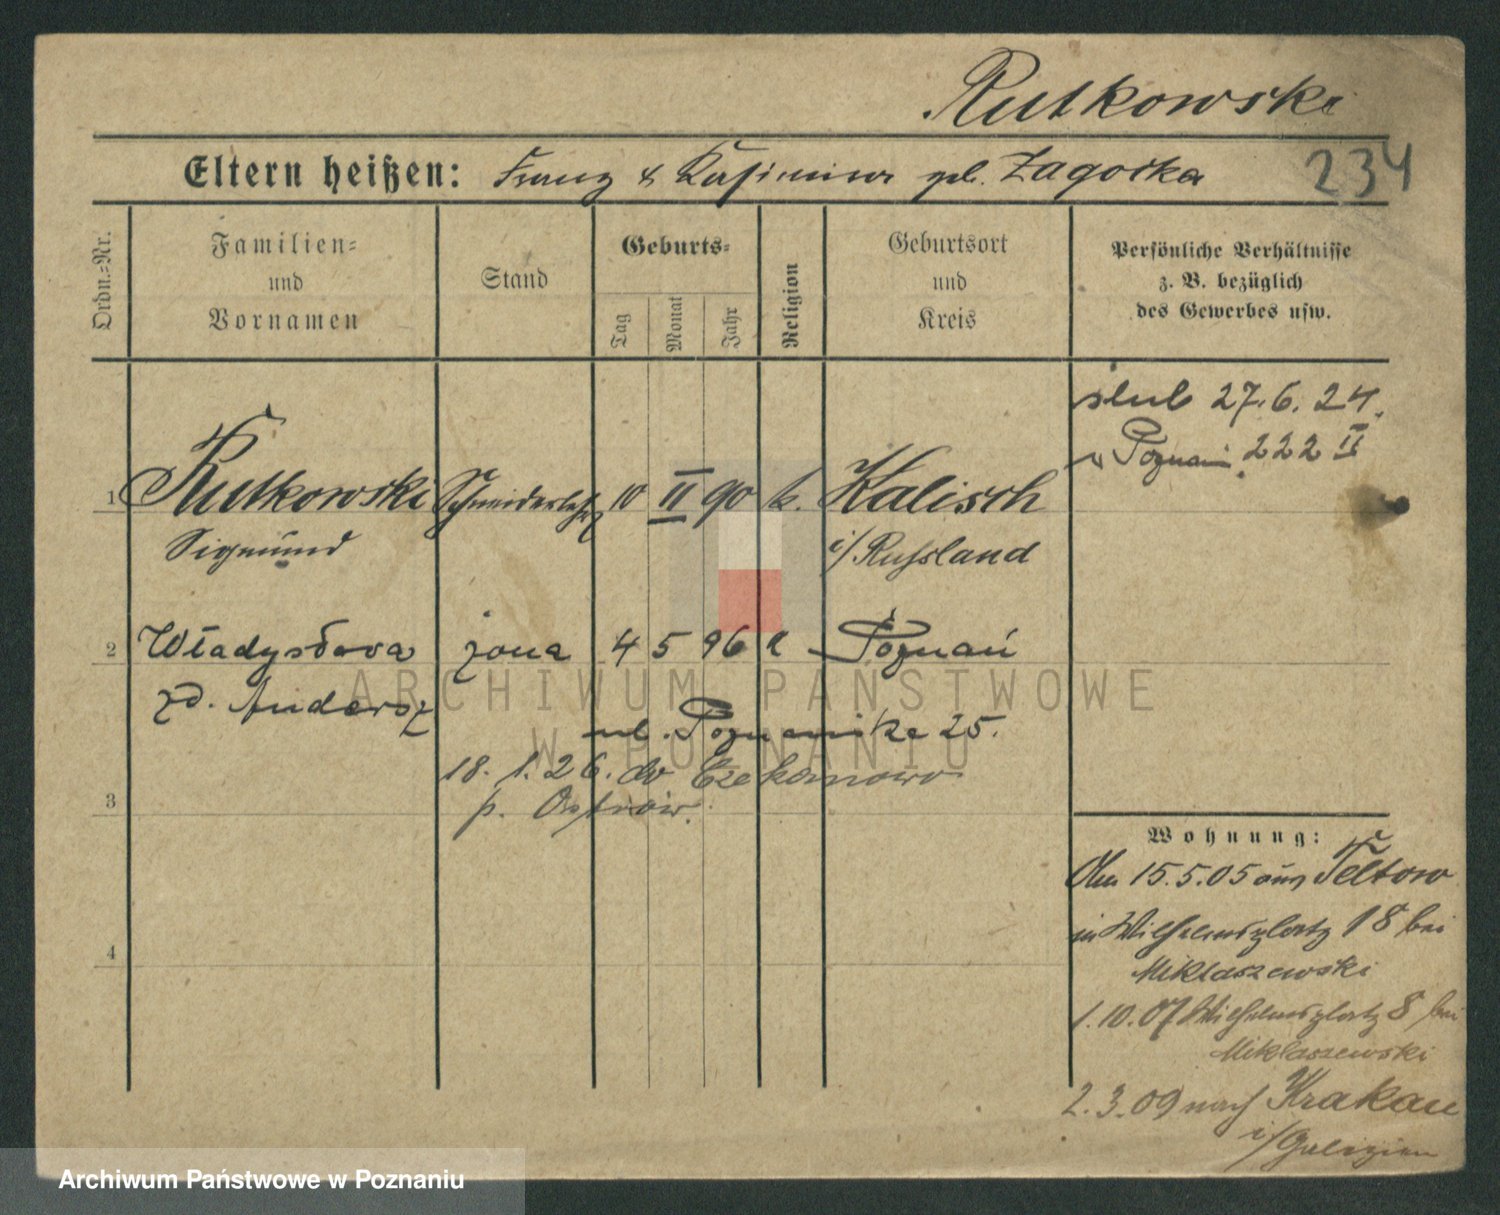 Rutkowski
234
Eltern heißen: Franz & Kasimira geb. Zagorska
Ordn.-Nr.
Familien-
und
Vornamen
Stand
Geburts-
Tag
Monat
Jahr
Religion
Geburtsort
und
Kreis
Persönliche Verhältnisse
z. B. bezüglich
des Gewerbes usw.
ślub 27.6.24.
w Poznaniu 222 II
1 Rutkowski Schneiderlehrl 10 II 90 k. Kalisch
Sigmund i/Russland
2 Władysława żona 4 5 96 k Poznań
zd. Andersz
ul. Poznańska 25.
18. 1. 26. do Czekanowo
p. Ostrów.
3
4
Wohnung:
15.5.05 aus Teltow
in Wilhelmsplatz 18 bei
Miklaszewski
1.10.07 Wilhelmsplatz 8 bei
Miklaszewski
2.3.09 nach Krakau
i/Galizien
ARCHIWUM PAŃSTWOWE
W POZNANIU
Archiwum Państwowe w Poznaniu